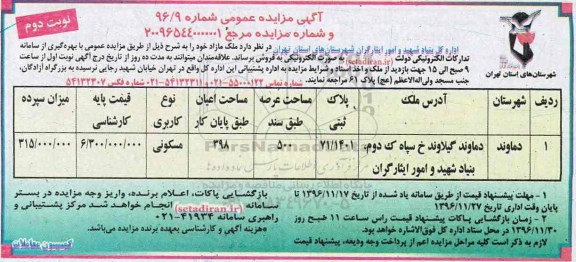 نوبت دوم
آگهی مزایده عمومی شماره ۹۶/۹
و شماره مزایده مرجع ۲۰۰۹۶۵۴۴۰۰۰۰۰۱
اداره کل بنیاد شهید و امور ایثارگران شهرستان‌های استان تهران در نظر دارد ملک مازاد خود را به شرح ذیل از طریق مزایده عمومی با بهره‌گیری از سامانه
تدارکات الکترونیکی دولت به صورت الکترونیکی به فروش برساند. علاقه‌مندان میتوانند به مدت ده روز از تاریخ درج آگهی نوبت اول از ساعت
۹ صبح الی ۱۵ جهت بازدید از ملک و اخذ اسناد و شرایط مزایده به اداره پشتیبانی این اداره کل واقع در تهران خیابان شهید رجایی نرسیده به بزرگراه آزادگان،
جنب مسجد ولی‌العصر (عج) پلاک ۶۱ مراجعه نمایند. شماره تماس ۵۵۰۰۰۱۲۲-۰۲۱ ۵۴۱۳۲۳۱۱-۰۲۱ شماره فکس ۵۴۱۳۲۳۰۷
شهرستان‌های استان تهران
ردیف شهرستان آدرس ملک پلاک ثبتی مساحت عرصه طبق سند مساحت اعیان طبق پایان کار نوع کاربری قیمت پایه کارشناسی میزان سپرده
۱ دماوند دماوند گیلاوند خ سپاه ک دوم، بنیاد شهید و امور ایثارگران ۷۱/۱۴۰۱ ۵۰۰ ۳۹۸ مسکونی ۶/۳۰۰/۰۰۰/۰۰۰ ۳۱۵/۰۰۰/۰۰۰
۱ - مهلت پیشنهاد قیمت از طریق سامانه یاد شده از تاریخ ۱۳۹۶/۱۱/۱۷ تا
پایان وقت اداری تاریخ ۱۳۹۶/۱۱/۲۷
۲ - زمان بازگشایی پاکات پیشنهاد قیمت راس ساعت ۱۱ صبح روز
۱۳۹۶/۱۱/۳۰ در محل ستاد اداره کل فوق‌الاشاره خواهد بود.
لازم به ذکر است کلیه مراحل مزایده اعم از پرداخت وجه ودیعه، پیشنهاد قیمت
بازگشایی پاکات، اعلام برنده، واریز وجه مزایده در بستر
سامانه (setadiran.ir) انجام خواهد شد مرکز پشتیبانی و
راهبری سامانه ۴۱۹۳۴-۰۲۱
*هزینه آگهی و کارشناسی بعهده برنده مزایده می‌باشد.
کمیسیون معاملات